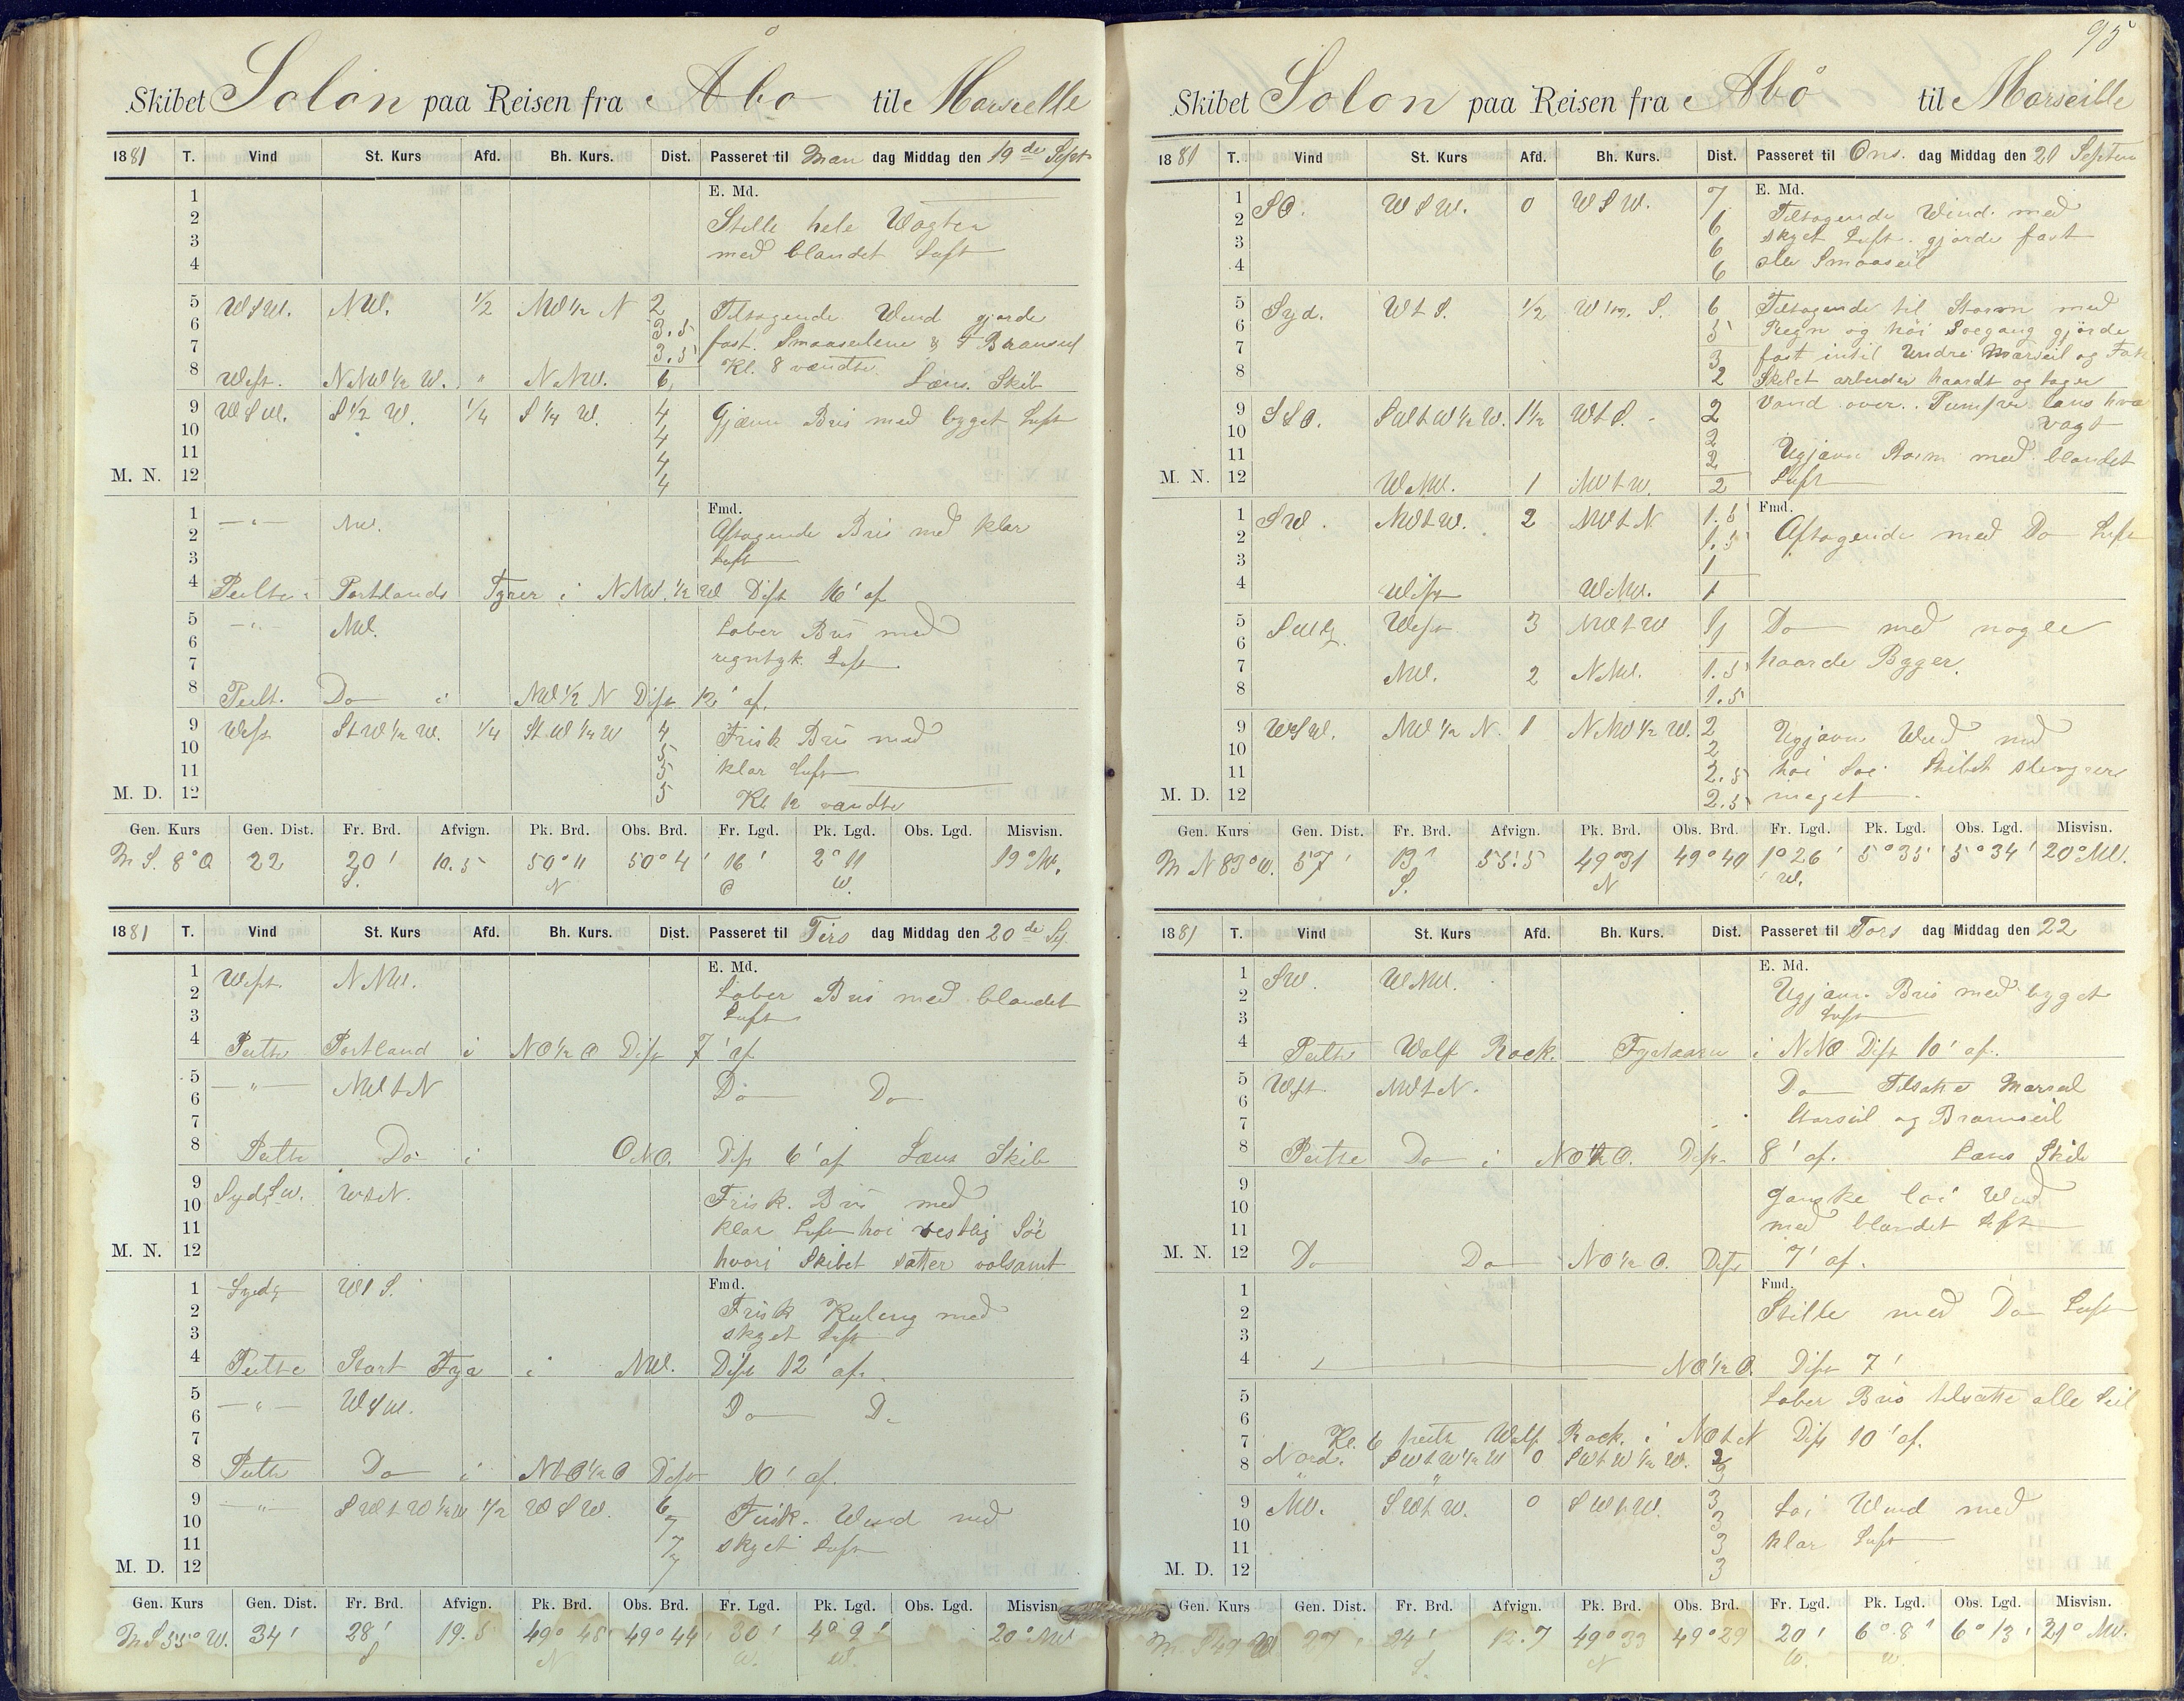 Skibet Solon paa Reisen fra Åbo til Marseille
1881 T. Vind St. Kurs Afd. Bh. Kurs. Dist. Passeret til Man dag Middag den 19de Sept
1 E. Md.
2 Stille hele Vagten
3 med blandet Luft
4
5 WSW. NW. 1/2 NW 1/2 N 2 Tiltagende Wind gjorde
6 3.5 fast. Smaaseilene &
7 3.5 Kl. 8 vendte
8 West. NNW 1/2 W. " NNW. 6 Læns. Skib
9 WSW. S 1/2 W. 1/4 S 1/4 W. 4 Gjævn Bris med bygget Luft
10 4
11 4
M. N. 12 4
1 — " — NW. Fmd.
2 Aftagende Bris med klar
3 Luft
4 Peilte Portlands Fyrer i NNW. 1/2 W Dist 16' af
5 — " — NW. Laber Bris med
6 regntyk. Luft
7
8 Peilt. Do i NW 1/2 N Dist 12' af.
9 West StW 1/2 W. 1/4 StW 1/4 W 4 Frisk Bris med
10 5 klar Luft
11 5
M. D. 12 5 Kl. 12 vendte
Gen. Kurs Gen. Dist. Fr. Brd. Afvign. Pk. Brd. Obs. Brd. Fr. Lgd. Pk. Lgd. Obs. Lgd. Misvisn.
M S. 8° O 22 20' 10.5 50° 11 50° 4' 16' 2° 11 19° NW.
S. N O W.
1881 T. Vind St. Kurs Afd. Bh. Kurs. Dist. Passeret til Tirs dag Middag den 20de Sep.
1 West. NNW. E. Md.
2 Laber Bris med blandet
3 Luft
4 Peilte Portland i NO 1/2 O Dist 7' af
5 — " — NWtN Do Do
6
7
8 Peilte Do i ONO. Dist 6' af Læns Skib
9 Syd SW. WtN. Frisk. Bris med
10 klar Luft hoi vestlig Söe
11 hvori Skibet sætter volsomt
M. N. 12
1 Sydg WtS. Fmd.
2 Frisk Kuling med
3 skyet Luft
4 Peilte Start Fyr i NW. Dist 12' af.
5 — " — WSW. Do Do
6
7
8 Peilte Do i NtO 1/2 O Dist 10' af.
9 — " — SWtW 1/2 W 1/2 WSW. 6 Frisk. Wind med
10 7 skyet Luft
11 7
M. D. 12 7
Gen. Kurs Gen. Dist. Fr. Brd. Afvign. Pk. Brd. Obs. Brd. Fr. Lgd. Pk. Lgd. Obs. Lgd. Misvisn.
M S 35° W. 34' 28' 19.5 49° 48' 49° 44' 30' 4° 9' 20° NW
S N W. W.
95
Skibet Solon paa Reisen fra Abo til Marseille
1881 T. Vind St. Kurs Afd. Bh. Kurs. Dist. Passeret til Ons. dag Middag den 21 Septem
1 SO. WSW. 0 WSW. 7 E. Md.
2 6 Tiltagende Wind. med
3 6 skyet Luft. gjorde fast
4 6 alle Smaaseil
5 Syd. WtS. 1/2 W 1/2. S. 6 Tiltagende til Storm med
6 5 Regn og höi Soegang gjörde
7 3 fast intil Undre Marseil og Fok
8 2 Skibet arbeider haardt og tager
9 SSO. SWtW 1/2 W. 1 1/2 WtS. 2 Vand over. Pumper læns hver
10 2 vagt
11 2 Ugjævn Storm med blandet
M. N. 12 WNW. 1 NWtW. 2 Luft
1 SW. NWtW. 2 NWtN 1.5 Fmd.
2 1.5 Aftagende med Do Luft
3 1
4 West WNW. 1
5 West 3 NWtW 1 Do med nogle
6 1 haarde Byger.
7 NW. 2 NNW. 1.5
8 1.5
9 WSW. NW 1/2 N. 1 NNW 1/2 W. 2 Ugjævn Wind med
10 2 höi Soe. Skibet slingrer
11 2.5 meget
M. D. 12 2.5
Gen. Kurs Gen. Dist. Fr. Brd. Afvign. Pk. Brd. Obs. Brd. Fr. Lgd. Pk. Lgd. Obs. Lgd. Misvisn.
M N 83° W. 57' 13' 55.5 49° 31 49° 40 1° 26' 5° 35' 5° 34' 20° NW.
S. N W.
1881 T. Vind St. Kurs Afd. Bh. Kurs. Dist. Passeret til Tors dag Middag den 22
1 SW. WNW. E. Md.
2 Ugjævn Bris med bygget
3 Luft
4 Peilte Wolf Rock. Fyrtaarn i NNO Dist 10' af.
5 West NWtN. Do Tilsatte Marseil
6 Storseil og Bramseil
7
8 Peilte Do i NO 1/2 O. Dist 8' af. Læns Skib
9 Ganske loi Wind
10 med blandet Luft
11
M. N. 12 Do Do NO 1/2 O. Dist 7' af.
1 Fmd.
2 Stille med Do Luft
3
4 NO 1/2 O. Dist 7'
5 Laber Bris tilsatte alle Seil
6
7 Kl. 6 peilte Wolf Rock. i NOtN Dist 10' af.
8 Nord. SWtW 1/2 W 0 SWtW 1/2 W. 3
9 NW. SWtW. 0 SWtW. 3 Loi Wind med
10 3 klar Luft
11 3
M. D. 12 3
Gen. Kurs Gen. Dist. Fr. Brd. Afvign. Pk. Brd. Obs. Brd. Fr. Lgd. Pk. Lgd. Obs. Lgd. Misvisn.
M. S 49 W. 27' 24' 12.7 49° 33 49° 29 20' 6° 8' 6° 13' 21° NW.
S. N W. W.